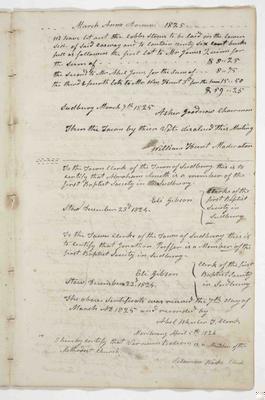 March Anno Domini 1825
We have let out the Cobble Stone to be laid on the
side of said Causway and to contain sixty six cart bucks
full as followes the first lot to Mr James
the Sum of $ 8-25
the Second to Mr Abel Jones for the Sum of 8-75
the third & fourth lots to Mr Wm Hunt Jr for the Sum 15-50
Sudbury March 7th 1825
Asher Goodnow Chairman
Then the Town by their Vote desolved this Meeting
William Hunt Moderator
To the Town Clerk of the Town of Sudbury this is to
certify that Abraham is a member of the
first Baptist Society in Sudbury
Eli Gibson
Clerk of the
first Baptist
Society in
Sudbury
Stow December 23d 1824
To the Town Clerk of the Town of Sudbury this is
to certify that Jonathan is a Member of the
first Baptist Society in Sudbury
Eli Gibson
Clerk of the first
Baptist Society
in Sudbury
Stow December 22 1824
The above Certificate was received the 7th day of
March AD 1825 and recorded by
Abel Wheeler T. Clerk
April 5th 1824
I hereby certify that is a Member of the
Methodist Church
Clerk